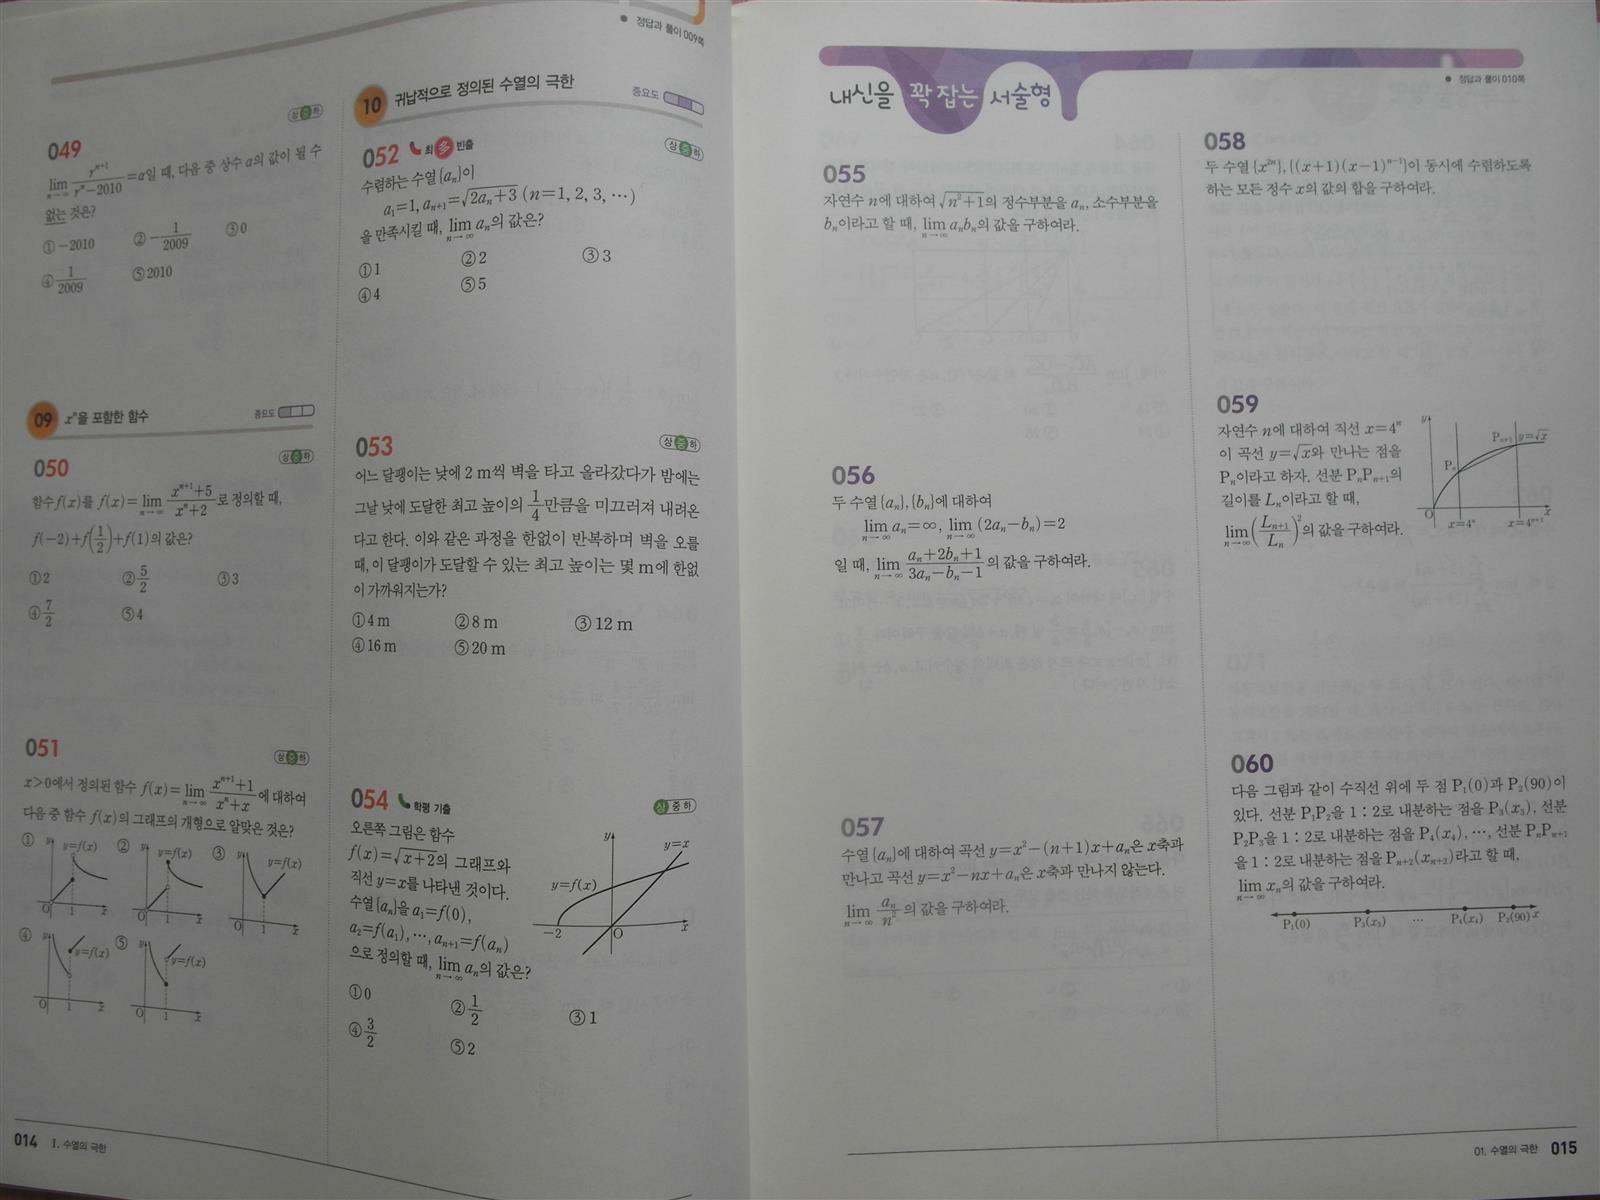 정답과 풀이 009쪽
049
상 중 하
lim n→∞ rⁿ⁺¹/(rⁿ-2010) = α일 때, 다음 중 상수 α의 값이 될 수
없는 것은?
① -2010 ② -1/2009 ③ 0
④ 1/2009 ⑤ 2010
09 xⁿ을 포함한 함수
중요도
050
상 중 하
함수 f(x)를 f(x)=lim n→∞ (xⁿ⁺¹+5)/(xⁿ+2)로 정의할 때,
f(-2)+f(1/2)+f(1)의 값은?
① 2 ② 5/2 ③ 3
④ 7/2 ⑤ 4
051
상 중 하
x>0에서 정의된 함수 f(x)=lim n→∞ (xⁿ⁺¹+1)/(xⁿ+x)에 대하여
다음 중 함수 f(x)의 그래프의 개형으로 알맞은 것은?
① y y=f(x) O 1 x
② y y=f(x) O 1 x
③ y y=f(x) O 1 x
④ y y=f(x) O 1 x
⑤ y y=f(x) O 1 x
014 Ⅰ. 수열의 극한
10 귀납적으로 정의된 수열의 극한
중요도
052 최多빈출
상 중 하
수렴하는 수열 {aₙ}이
a₁=1, aₙ₊₁=√(2aₙ+3) (n=1, 2, 3, …)
을 만족시킬 때, lim n→∞ aₙ의 값은?
① 1 ② 2 ③ 3
④ 4 ⑤ 5
053
상 중 하
어느 달팽이는 낮에 2 m씩 벽을 타고 올라갔다가 밤에는
그날 낮에 도달한 최고 높이의 1/4만큼을 미끄러져 내려온
다고 한다. 이와 같은 과정을 한없이 반복하며 벽을 오를
때, 이 달팽이가 도달할 수 있는 최고 높이는 몇 m에 한없
이 가까워지는가?
① 4 m ② 8 m ③ 12 m
④ 16 m ⑤ 20 m
054 학평 기출
상 중 하
오른쪽 그림은 함수
f(x)=√(x+2)의 그래프와
직선 y=x를 나타낸 것이다.
수열 {aₙ}을 a₁=f(0),
a₂=f(a₁), …, aₙ₊₁=f(aₙ)
으로 정의할 때, lim n→∞ aₙ의 값은?
y y=x
y=f(x)
-2 O x
① 0 ② 1/2 ③ 1
④ 3/2 ⑤ 2
내신을 꽉 잡는 서술형
정답과 풀이 010쪽
055
자연수 n에 대하여 √(n²+1)의 정수부분을 aₙ, 소수부분을
bₙ이라고 할 때, lim n→∞ aₙbₙ의 값을 구하여라.
056
두 수열 {aₙ}, {bₙ}에 대하여
lim n→∞ aₙ=∞, lim n→∞ (2aₙ-bₙ)=2
일 때, lim n→∞ (aₙ+2bₙ+1)/(3aₙ-bₙ-1)의 값을 구하여라.
057
수열 {aₙ}에 대하여 곡선 y=x²-(n+1)x+aₙ은 x축과
만나고 곡선 y=x²-nx+aₙ은 x축과 만나지 않는다.
lim n→∞ aₙ/n²의 값을 구하여라.
058
두 수열 {x²ⁿ}, {(x+1)(x-1)ⁿ⁻¹}이 동시에 수렴하도록
하는 모든 정수 x의 값의 합을 구하여라.
059
자연수 n에 대하여 직선 x=4ⁿ
이 곡선 y=√x와 만나는 점을
Pₙ이라고 하자. 선분 PₙPₙ₊₁의
길이를 Lₙ이라고 할 때,
lim n→∞ (Lₙ₊₁/Lₙ)²의 값을 구하여라.
y Pₙ₊₁ y=√x
Pₙ
O x=4ⁿ x=4ⁿ⁺¹ x
060
다음 그림과 같이 수직선 위에 두 점 P₁(0)과 P₂(90)이
있다. 선분 P₁P₂을 1 : 2로 내분하는 점을 P₃(x₃), 선분
P₂P₃을 1 : 2로 내분하는 점을 P₄(x₄), …, 선분 PₙPₙ₊₁
을 1 : 2로 내분하는 점을 Pₙ₊₂(xₙ₊₂)라고 할 때,
lim n→∞ xₙ의 값을 구하여라.
P₁(0) P₃(x₃) … P₄(x₄) P₂(90) x
01. 수열의 극한 015